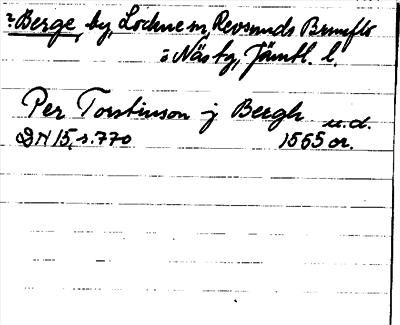 ? Berge, by, Lockne sn, Revsunds Brunflo
o Näs tg, Jämtl. l.
Per Torstinson j Bergh u.d.
DN 15, s. 770 1565 or.